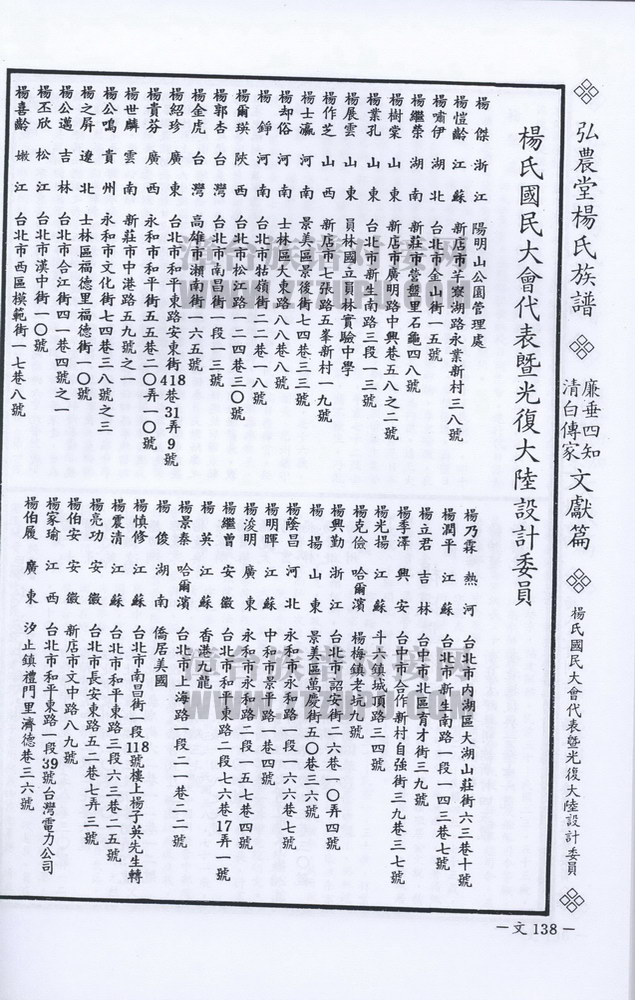 弘農堂楊氏族譜
廉垂四知
清白傳家
文獻篇
楊氏國民大會代表暨光復大陸設計委員
楊氏國民大會代表暨光復大陸設計委員
楊 傑 浙江 陽明山公園管理處
楊愷齡 江蘇 新店市芊寮湖路永業新村三八號
楊喻伊 湖北 台北市金山街一五號
楊繼榮 湖南 新莊市營盤里石龜四八號
楊樹棠 山東 新店市廣明路中興巷五八之二號
楊業孔 山東 台北市新生南路三段一三號
楊展雲 山東 員林國立員林實驗中學
楊作芝 山西 新店市七張路五峯新村一九號
楊士瀛 河南 景美區景後街七四巷三三號
楊却俗 河南 士林區大東路八八巷八號
楊 錚 河南 台北市牯嶺街二二巷一八號
楊爾瑛 陝西 台北市松江路一二四巷三〇號
楊郭杏 台灣 台北市南昌街一段一三號
楊金虎 台灣 高雄市瀨南街一六五號
楊紹珍 廣東 台北市和平東路安東街418巷31弄9號
楊貴芬 廣西 永和市和平街五五巷二〇弄一〇號
楊世麟 雲南 新莊市中港路五九號之一
楊公鳴 貴州 永和市文化街七四巷三八號之三
楊之屏 遼北 士林區福德里福德街一〇號
楊公邁 吉林 台北市合江街四一巷四號之一
楊丕欣 松江 台北市漢中街一〇號
楊喜齡 嫩江 台北市西區模範街一七巷八號
楊乃霖 熱河 台北市內湖區大湖山莊街六三巷十號
楊潤平 江蘇 台北市新生南路一段一四三巷七號
楊立君 吉林 台中市北區育才街三九號
楊季澤 興安 台中市合作新村自強街三九巷三七號
楊光揚 江蘇 斗六鎮城頂路三四號
楊克儉 哈爾濱 楊梅鎮老坑九號
楊興勤 浙江 台北市詔安街二六巷一〇弄四號
楊 揚 山東 景美區萬慶街五〇巷三六號
楊蔭昌 河北 永和市永和路一段一六六巷七號
楊明暉 江蘇 中和市景平路一巷四號
楊浚明 廣東 永和市永和路二段一五七巷四號
楊繼曾 安徽 台北市和平東路二段七六巷17弄一號
楊 英 江蘇 香港九龍
楊景泰 哈爾濱 台北市上海路一段二一巷二二號
楊 俊 湖南 僑居美國
楊慎修 江蘇 台北市南昌街一段118號樓上楊子英先生轉
楊震清 江蘇 台北市和平東路三段六三巷二五號
楊亮功 安徽 台北市長安東路五二巷七弄三號
楊伯安 安徽 新店市文中路八九號
楊家瑜 江西 台北市和平東路一段39號台灣電力公司
楊伯履 廣東 汐止鎮禮門里濟德巷三六號
－文138－